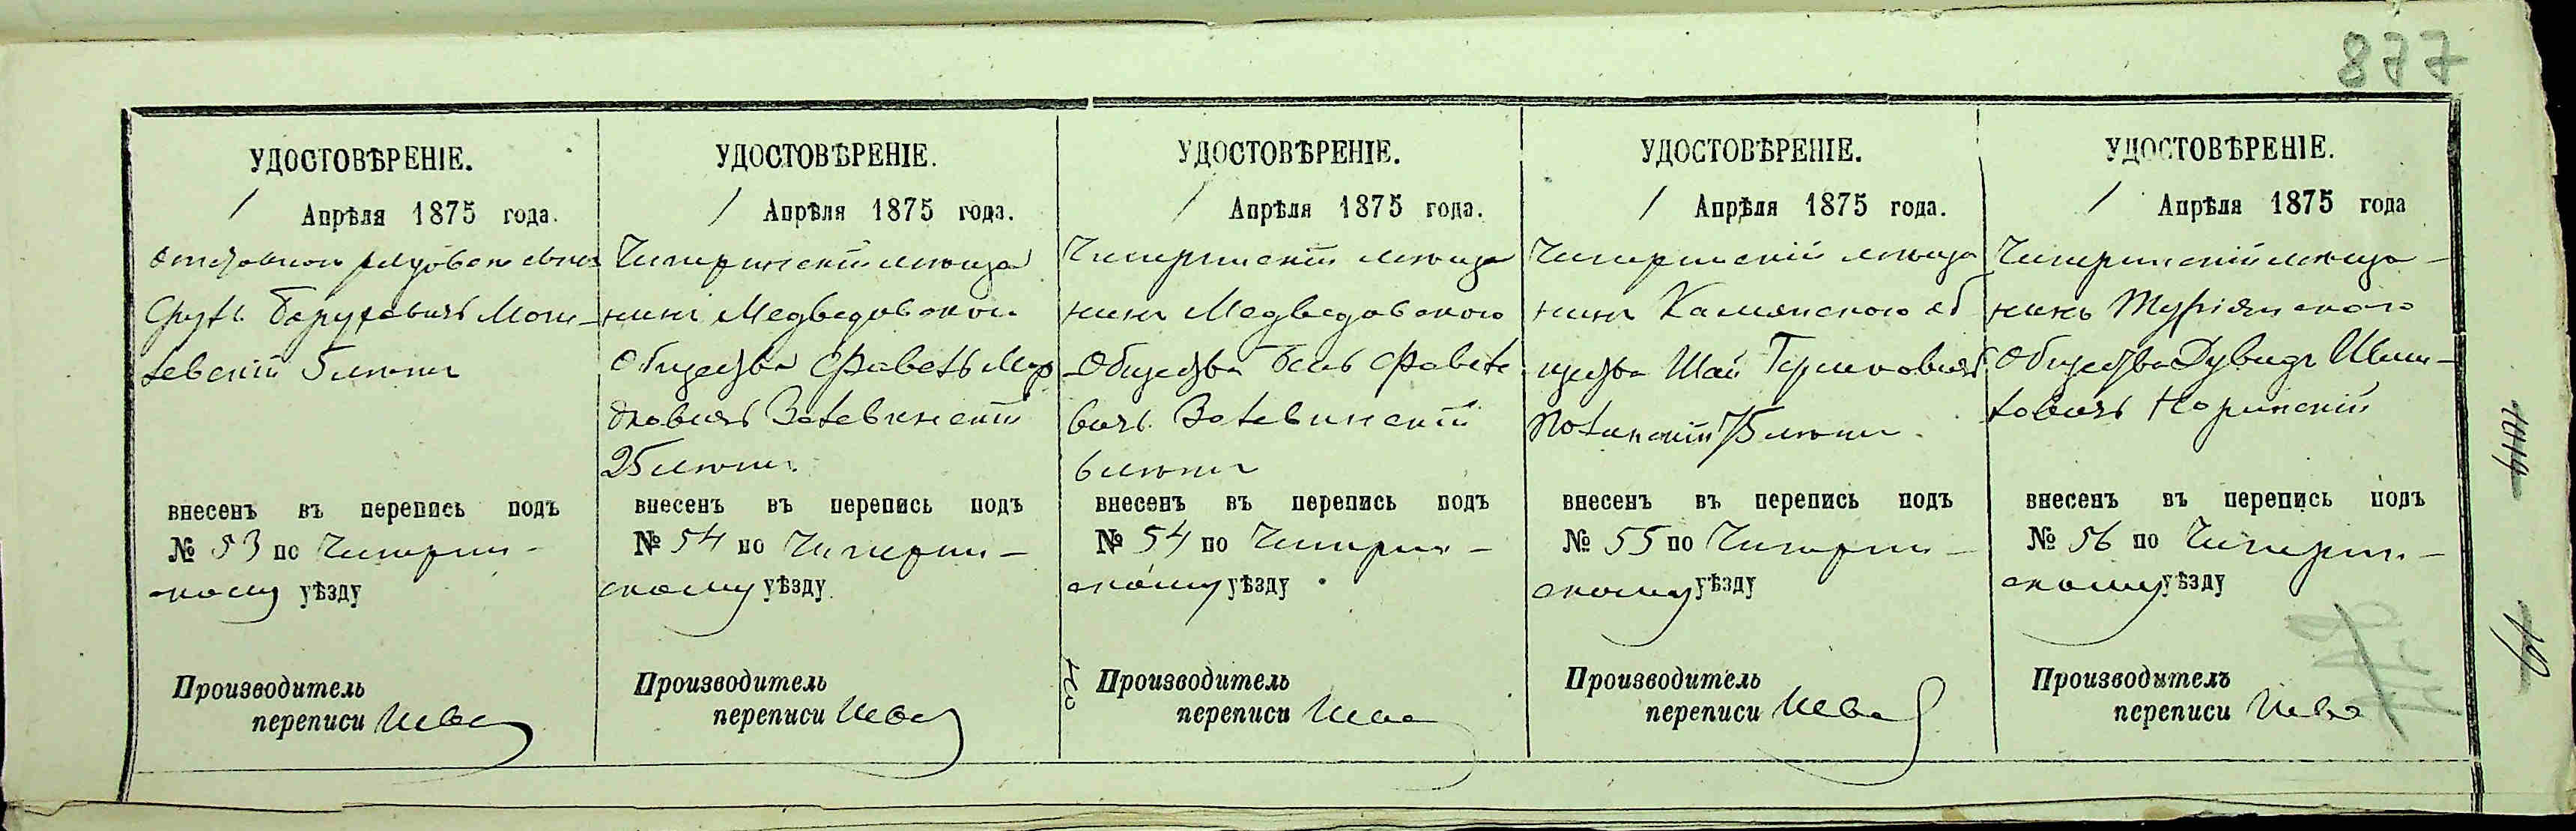 877
УДОСТОВѢРЕНІЕ.
1 Апрѣля 1875 года.
Сруль Баруховичъ Мош-
левскій 5 лѣтъ
внесенъ въ перепись подъ
№ 53 по Чигирин-
скому уѣзду
Производитель
переписи
УДОСТОВѢРЕНІЕ.
1 Апрѣля 1875 года.
Чигиринскій мѣща
нинъ Медведовского
Общества Фавель Мор
дковичъ
25 лѣтъ
внесенъ въ перепись подъ
№ 54 по Чигирин-
скому уѣзду
Производитель
переписи
УДОСТОВѢРЕНІЕ.
1 Апрѣля 1875 года.
Чигиринскій мѣща
нинъ Медведовского
Общества Фавеле
вичъ
6 лѣтъ
внесенъ въ перепись подъ
№ 54 по Чигирин-
скому уѣзду
Производитель
переписи
УДОСТОВѢРЕНІЕ.
1 Апрѣля 1875 года.
Чигиринскій мѣща
нинъ Камянского об
щества Шай Гершковичъ
лѣтъ
внесенъ въ перепись подъ
№ 55 по Чигирин-
скому уѣзду
Производитель
переписи
УДОСТОВѢРЕНІЕ.
1 Апрѣля 1875 года
Чигиринскій мѣща-
нинъ Туріянского
Общества Дувидъ Шми-
левичъ
внесенъ въ перепись подъ
№ 56 по Чигирин-
скому уѣзду
Производитель
переписи